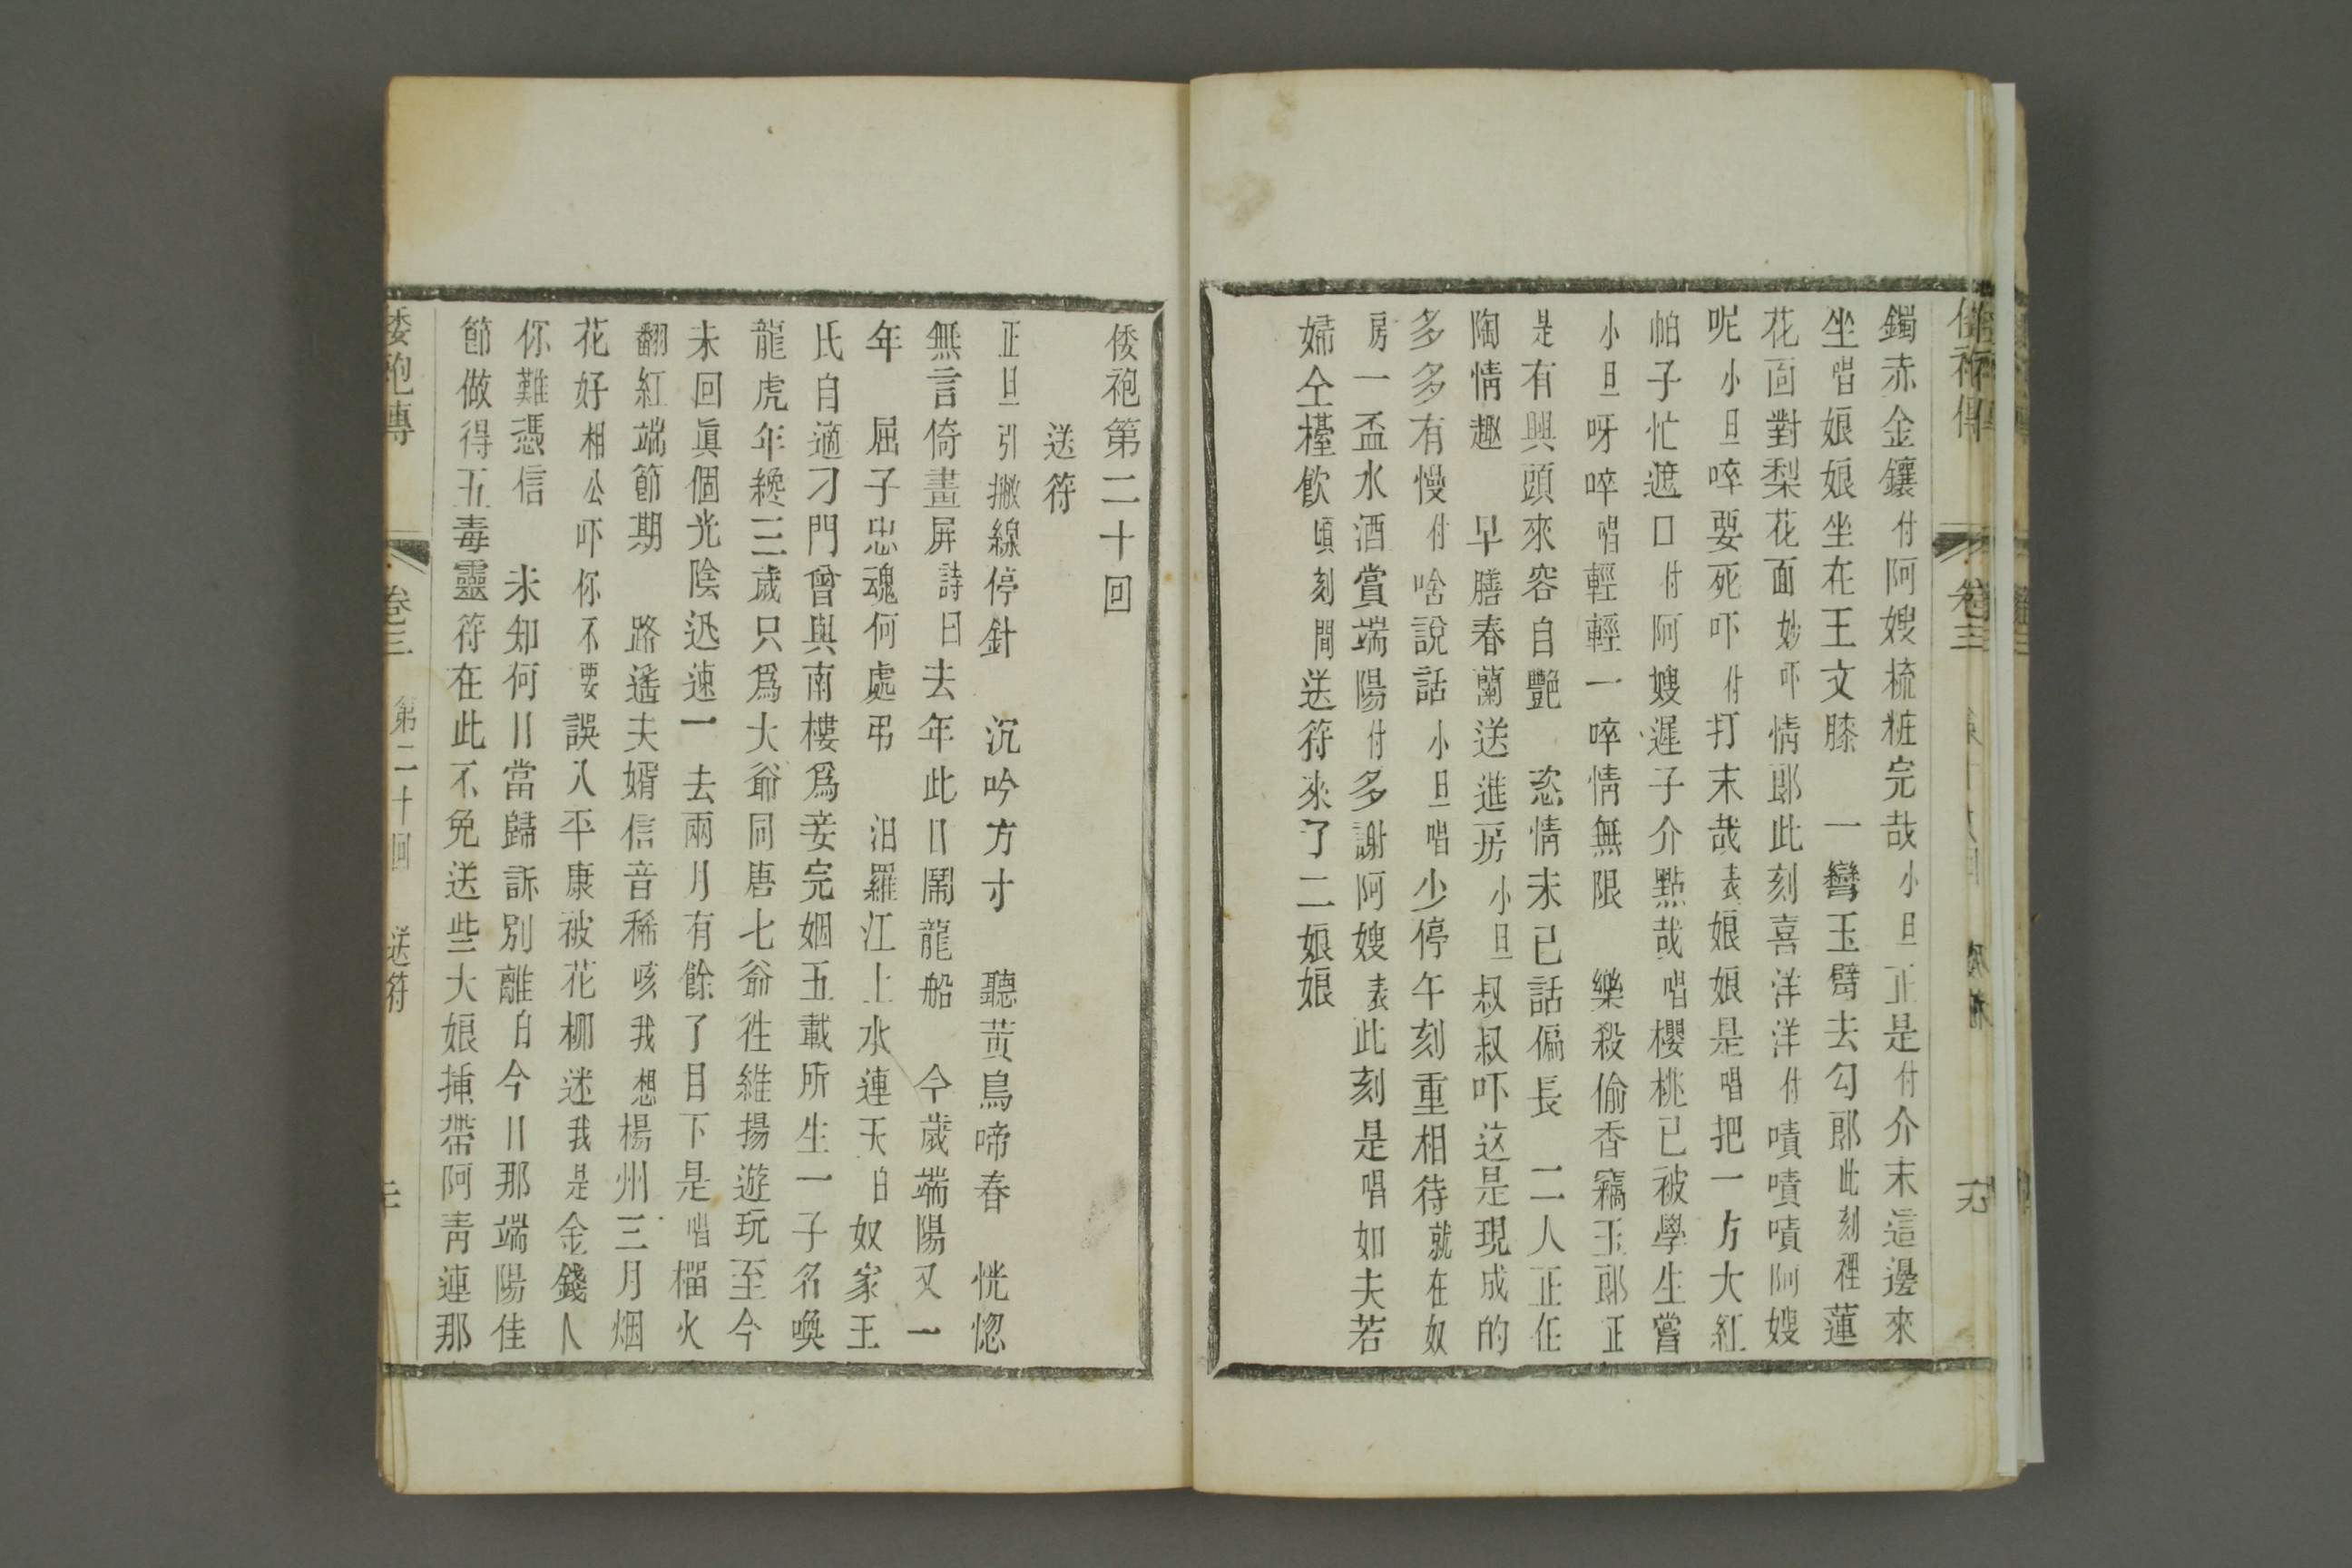 鐲赤金鑲付阿嫂梳粧完哉小旦正是付介末這邊來
坐唱娘娘坐在王文膝　一彎玉臂去勾郎此刻裡蓮
花面對梨花面妙吓情郎此刻喜洋洋付嘖嘖嘖阿嫂
呢小旦啐要死吓付打末哉表娘娘是唱把一方大紅
帕子忙遮口付阿嫂遲子介點哉唱櫻桃已被學生嘗
小旦呀啐唱輕輕一啐情無限　樂殺偷香竊玉郎正
是有興頭來容自艷　恣情未已話偏長　二人正在
陶情趣　早膳春蘭送進房小旦叔叔吓这是現成的
多多有慢付啥說話小旦唱少停午刻重相待就在奴
房一盃水酒賞端陽付多謝阿嫂表此刻是唱如夫若
婦仝檯飲頃刻間送符來了二娘娘
倭袍第二十回
送符
正旦引撇線停針　沉吟方寸　聽黃鳥啼春　恍惚
無言倚畫屏詩曰去年此日鬧龍船　今歲端陽又一
年　屈子忠魂何處弔　汨羅江上水連天白奴家王
氏自適刁門曾與南樓爲妾完姻五載所生一子名喚
龍虎年纔三歲只爲大爺同唐七爺徃維揚遊玩至今
未回眞個光陰迅速一去兩月有餘了目下是唱榴火
翻紅端節期　路遙夫婿信音稀咳我想楊州三月烟
花好相公吓你不要誤入平康被花柳迷我是金錢人
你難憑信　未知何日當歸訴別離白今日那端陽佳
節做得五毒靈符在此不免送些大娘揷帶阿靑連那
倭袍傳　卷三　第二十回　送符